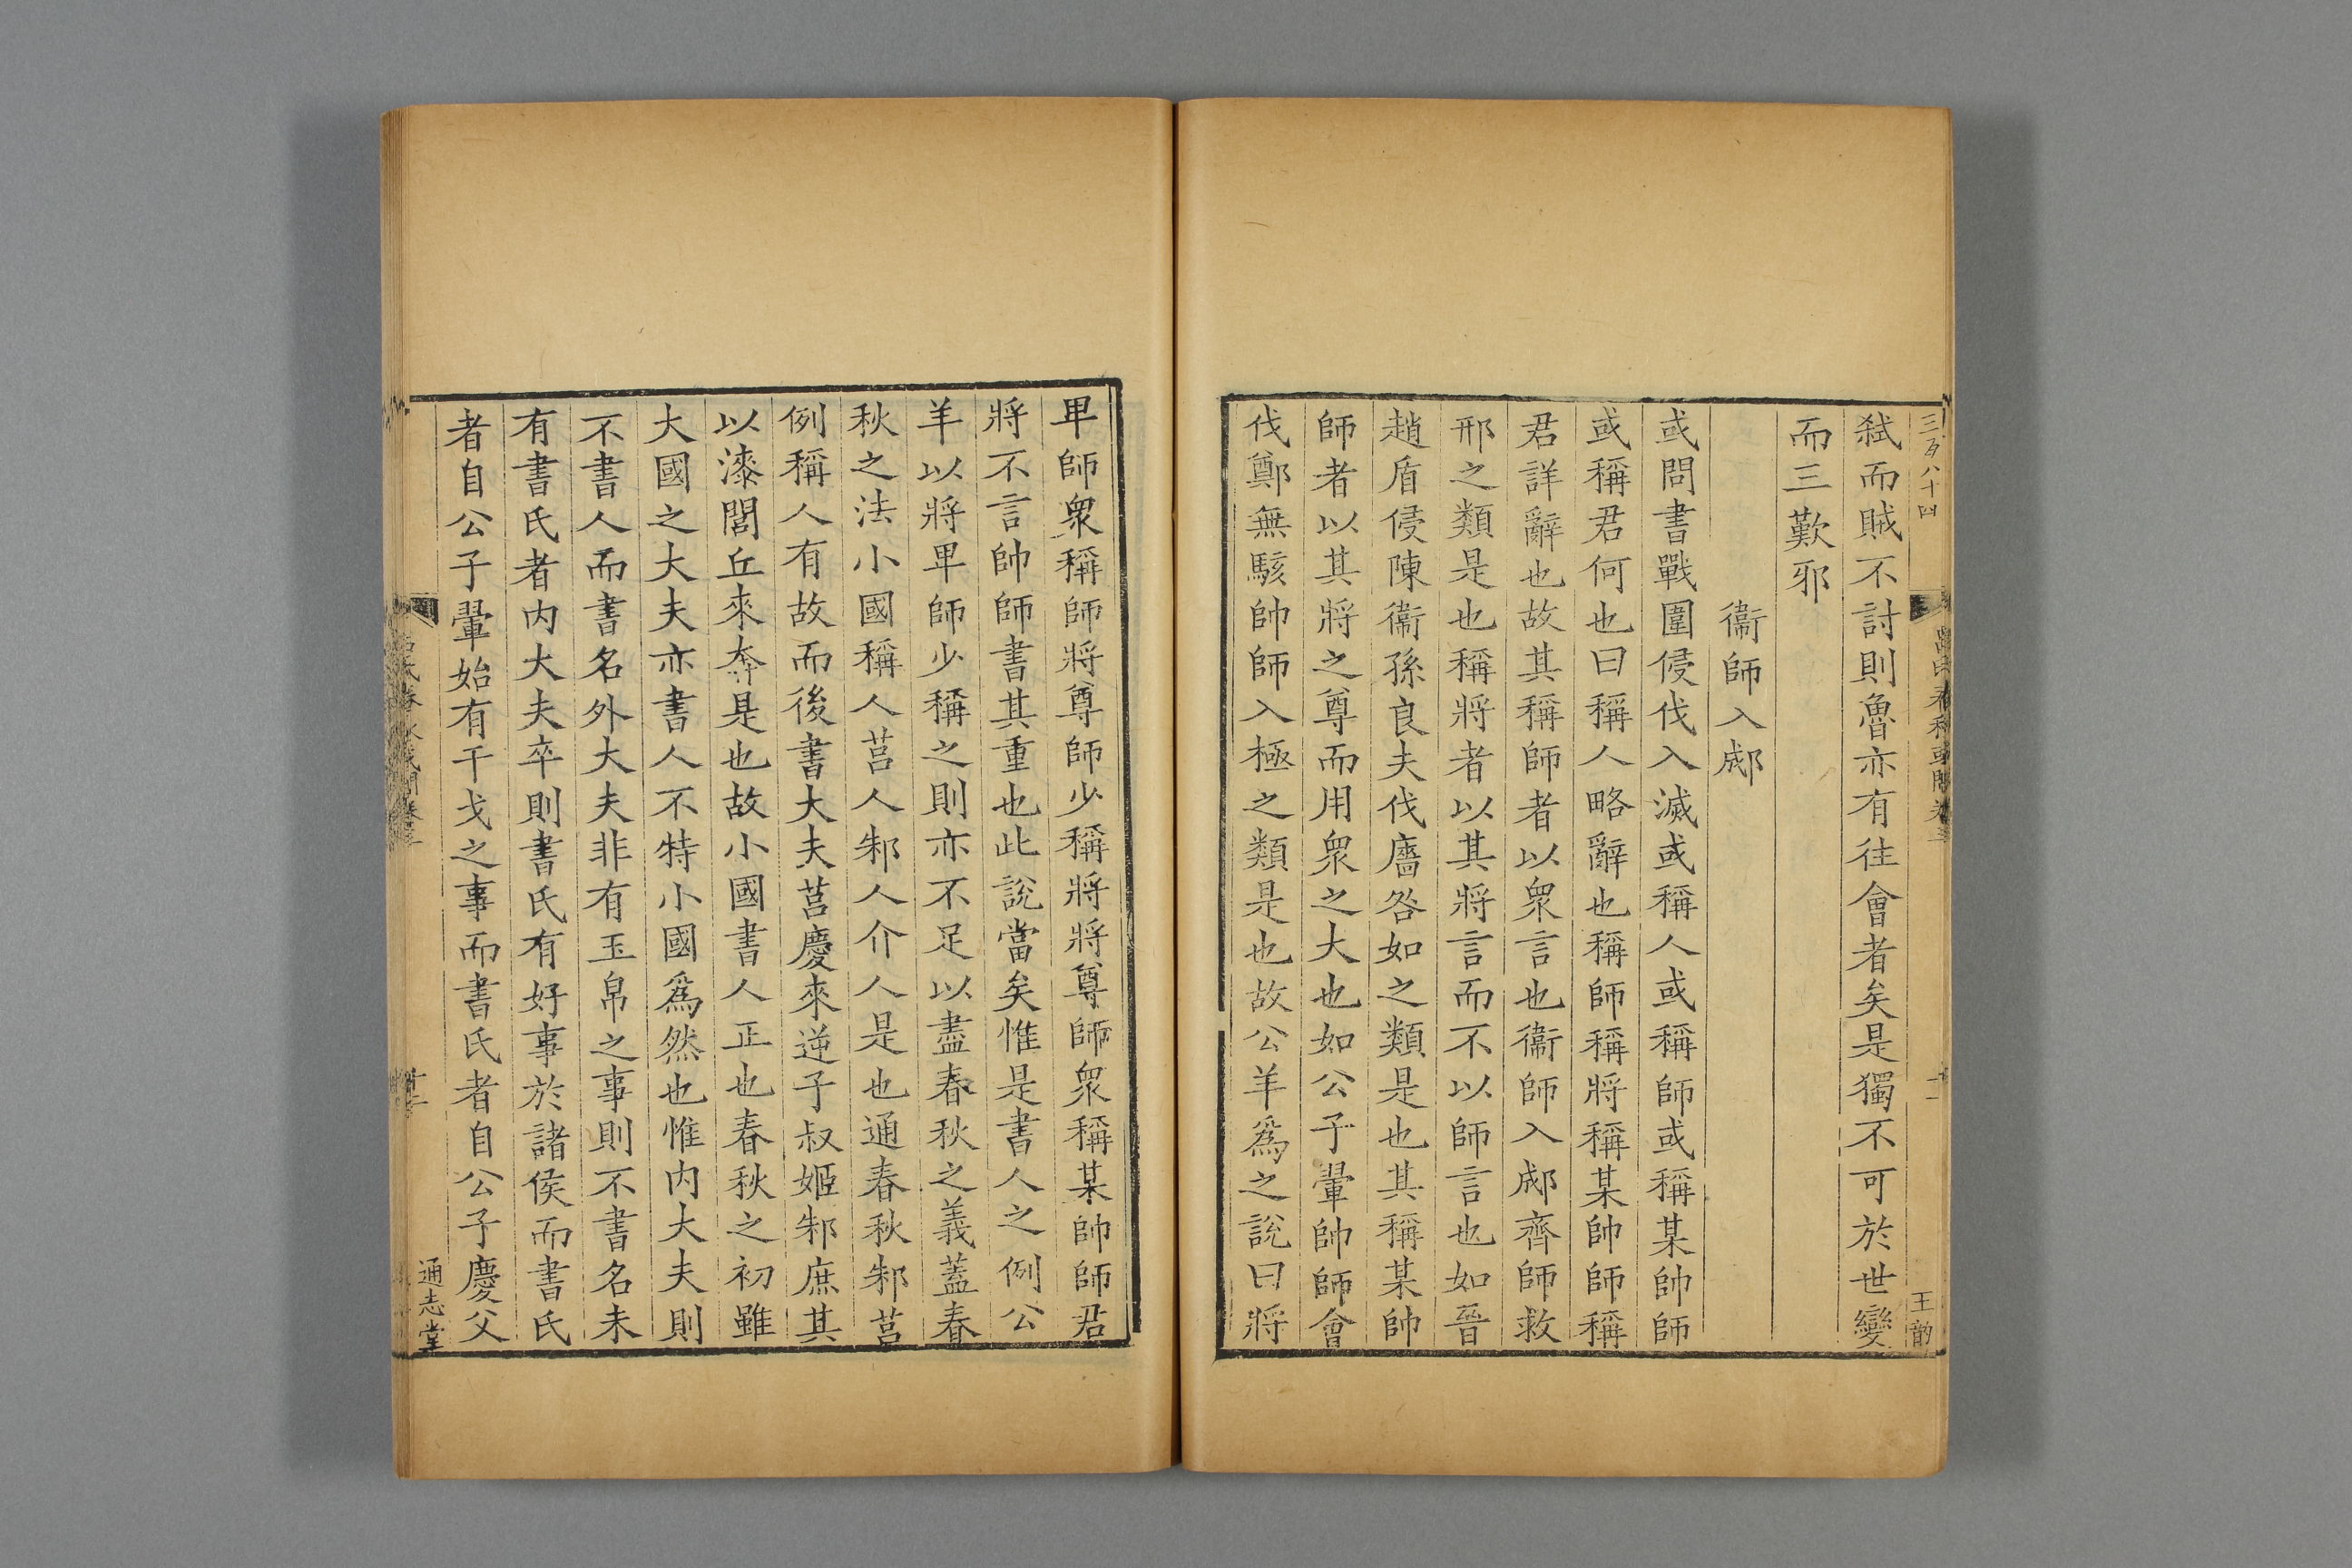 三百八十四
呂氏春秋或問卷三
王韵
弑而賊不討則魯亦有往會者矣是獨不可於世變
而三歎邪
衞師入郕
或問書戰圍侵伐入滅或稱人或稱師或稱某帥師
或稱君何也曰稱人略辭也稱師稱將稱某帥師稱
君詳辭也故其稱師者以衆言也衞師入郕齊師救
邢之類是也稱將者以其將言而不以師言也如晉
趙盾侵陳衞孫良夫伐廧咎如之類是也其稱某帥
師者以其將之尊而用衆之大也如公子翬帥師會
伐鄭無駭帥師入極之類是也故公羊爲之說曰將
卑師衆稱師將尊師少稱將將尊師衆稱某帥師君
將不言帥師書其重也此說當矣惟是書人之例公
羊以將卑師少稱之則亦不足以盡春秋之義蓋春
秋之法小國稱人莒人邾人介人是也通春秋邾莒
例稱人有故而後書大夫莒慶來逆子叔姬邾庶其
以漆閭丘來奔是也故小國書人正也春秋之初雖
大國之大夫亦書人不特小國爲然也惟内大夫則
不書人而書名外大夫非有玉帛之事則不書名未
有書氏者内大夫卒則書氏有好事於諸侯而書氏
者自公子翬始有干戈之事而書氏者自公子慶父
呂氏春秋或問卷三
十二
通志堂